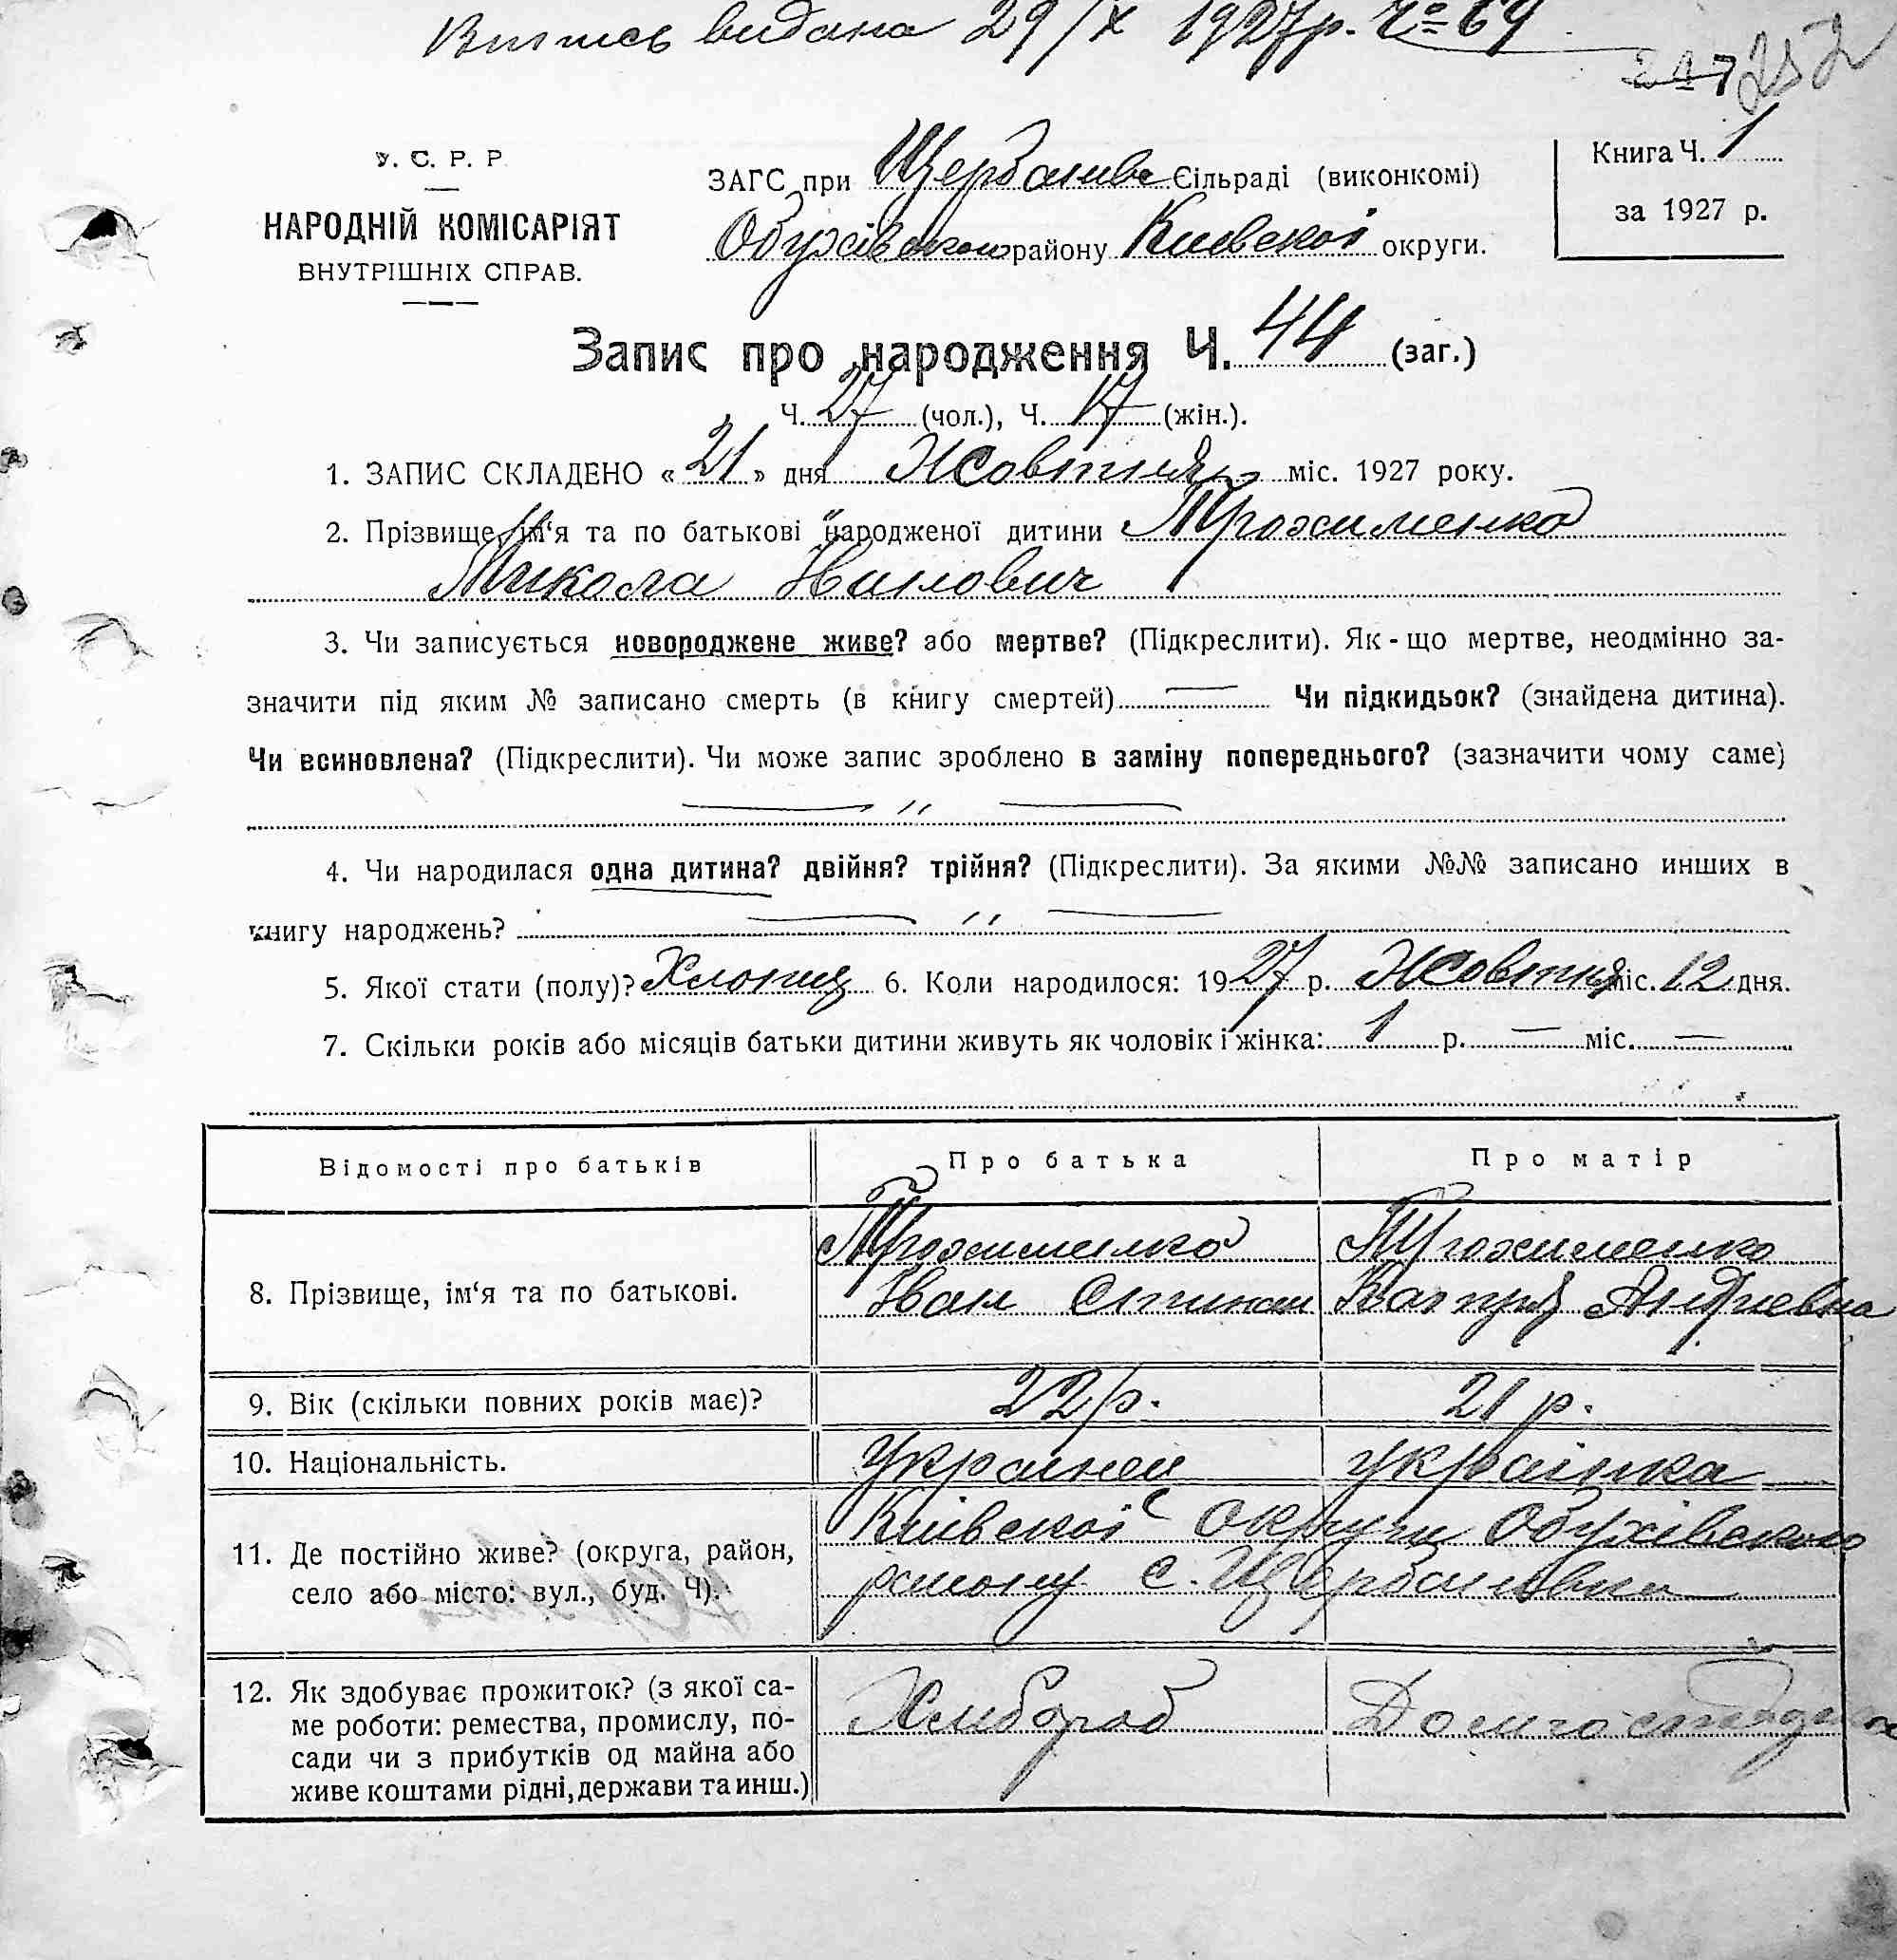 Витись видана 29/X 1927р. Ч= 69
247 252
У. С. Р. Р
НАРОДНІЙ КОМІСАРІЯТ
ВНУТРІШНІХ СПРАВ.
ЗАГС при Щербанив. Сільраді (виконкомі)
Обухівського району Киевскої округи.
Книга Ч. 1
за 1927 р.
Запис про народження Ч. 44 (заг.)
Ч. 27 (чол.), Ч. 17 (жін.).
1. ЗАПИС СКЛАДЕНО « 21 » дня Жовтня міс. 1927 року.
2. Прізвище, ім‘я та по батькові народженої дитини Трохименко
Микола Иванович
3. Чи записується новороджене живе? або мертве? (Підкреслити). Як - що мертве, неодмінно за-
значити під яким № записано смерть (в книгу смертей) — Чи підкидьок? (знайдена дитина).
Чи всиновлена? (Підкреслити). Чи може запис зроблено в заміну попереднього? (зазначити чому саме)
— „ —
4. Чи народилася одна дитина? двійня? трійня? (Підкреслити). За якими №№ записано инших в
книгу народжень? — „ —
5. Якої стати (полу)? Хлопец 6. Коли народилося: 1927 р. Жовтня міс. 12 дня.
7. Скільки років або місяців батьки дитини живуть як чоловік і жінка: 1 р. — міс. —
Відомості про батьків Про батька Про матір
Трохименко Трохименко
8. Прізвище, ім‘я та по батькові. Иван Андриевна
9. Вік (скільки повних років має)? 22 р. 21 р.
10. Національність. Украинец українка
Київскої округи Обухівского
11. Де постійно живе? (округа, район,
село або місто: вул., буд. Ч). району с. Щербанивки
12. Як здобуває прожиток? (з якої са-
ме роботи: ремества, промислу, по- Хлибороб
сади чи з прибутків од майна або
живе коштами рідні, держави та инш.)